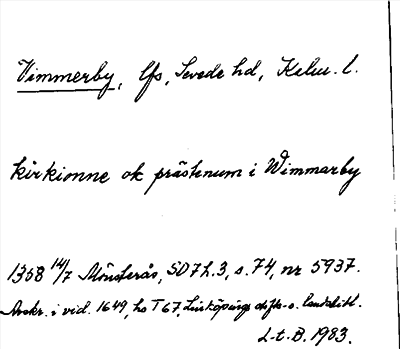 Vimmerby, lfs, Sevede hd, Kalm. l.
kirkionne ok prästenum i Wimmarby
1358 14/7 Mönsterås, SD 7 h. 3, s. 74, nr 5937.
Avskr. i vid. 1649, hs T 67, Linköpings stifts- o. landsbibl.
L-t. B. 1983.